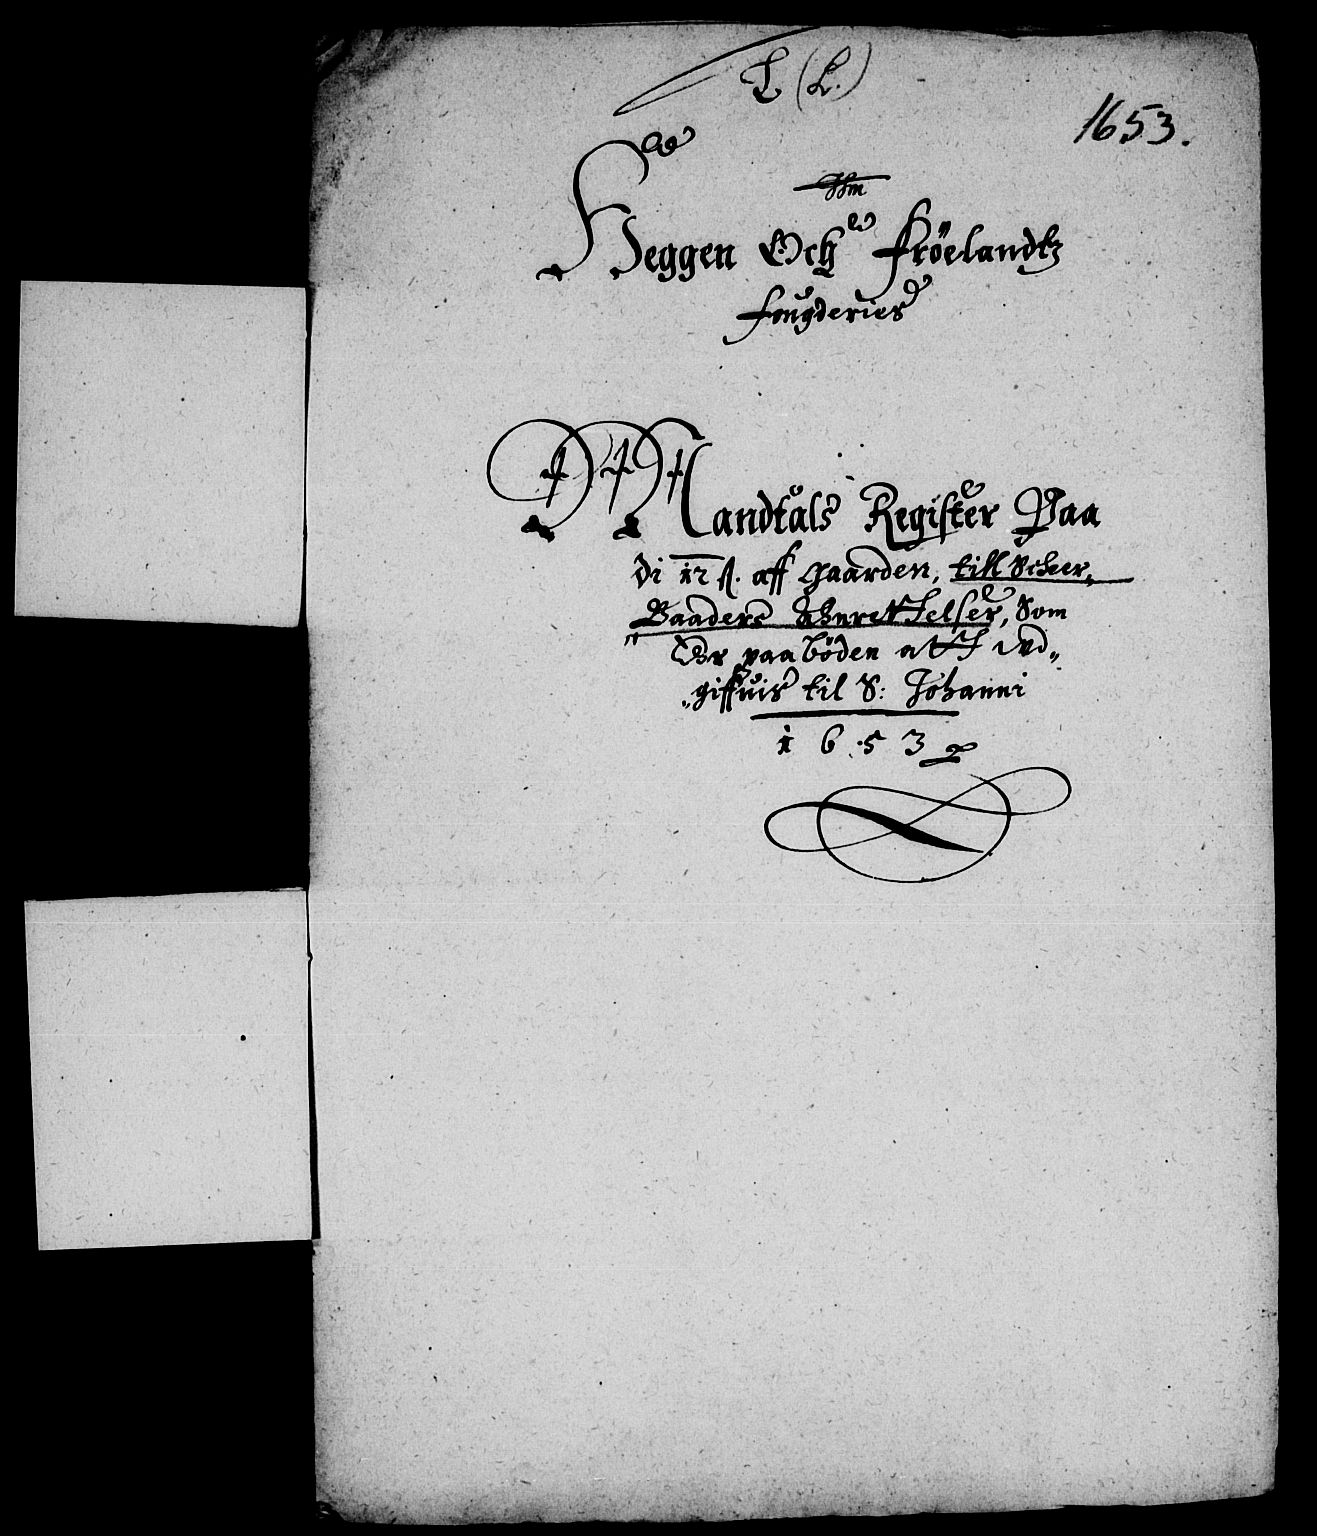 L (L.)
1653.
Heggen Och Fröelandtz
Fougderies
Mandtals Register Paa
di 12 β. aff Gaarden, till Scheer„
Baaders Anrettelser, Som
Er paaböden att wd„
„giffuis til S: Johanni
1653